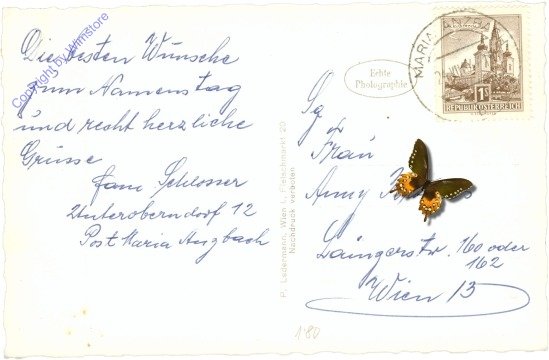 Die besten Wünsche
zum Namenstag
und recht herzliche
Grüsse
Fam. Schlosser
Unteroberndorf 12
Post Maria Anzbach
Copyright by Wimstore
P. Ledermann, Wien I., Fleischmarkt 20
Nachdruck verboten
Echte
Photographie
MARIA ANZBA
1S
REPUBLIK ÖSTERREICH
Sg
Frau
Anny
Laingerstr. 160 oder
162
Wien 13
180